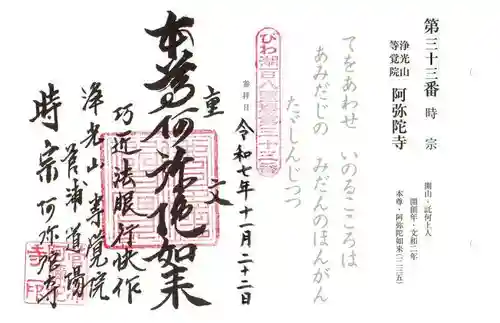 第三十三番 時宗
浄光山
等覚院 阿弥陀寺
開山・託何上人
開創年・文和二年
本尊・阿弥陀如来(二三五)
てをあわせ いのるこころは
あみだじの みだんのほんがん
たゞしんじつつ
びわ湖百八霊場第三十三番
参拝日 令和七年十一月二十二日
重文
本尊阿弥陀如来
巧匠法眼行快作
浄光山等覚院
菅浦道場
時宗阿弥陀寺